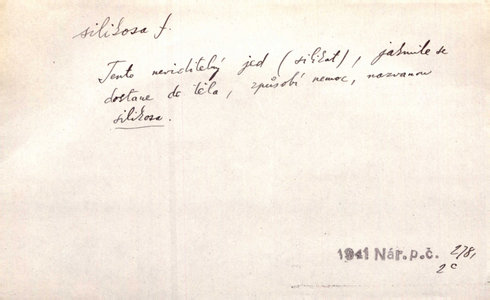 silikosa f.
Tento neviditelný jed (silikát), jakmile se
dostane do těla, způsobí nemoc, nazvanou
silikosa.
1941 Nár. p. č. 278,
2c